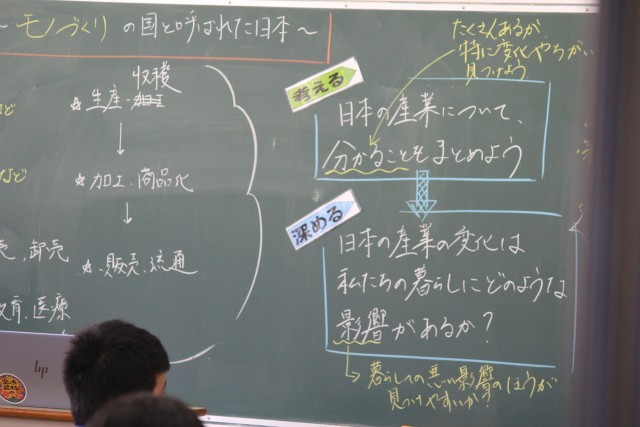 ～モノづくりの国と呼ばれた日本～
収穫
☆生産・加工
↓
☆加工、商品化
↓
☆、販売、流通
売、卸売
教育、医療
など
たくさんあるが、
特に変化やちがい
見つけよう
考える
日本の産業について、
分かることをまとめよう
深める
日本の産業の変化は
私たちの暮らしにどのような
影響があるか？
→暮らしの悪い影響のほうが
見つけやすいか？
hp